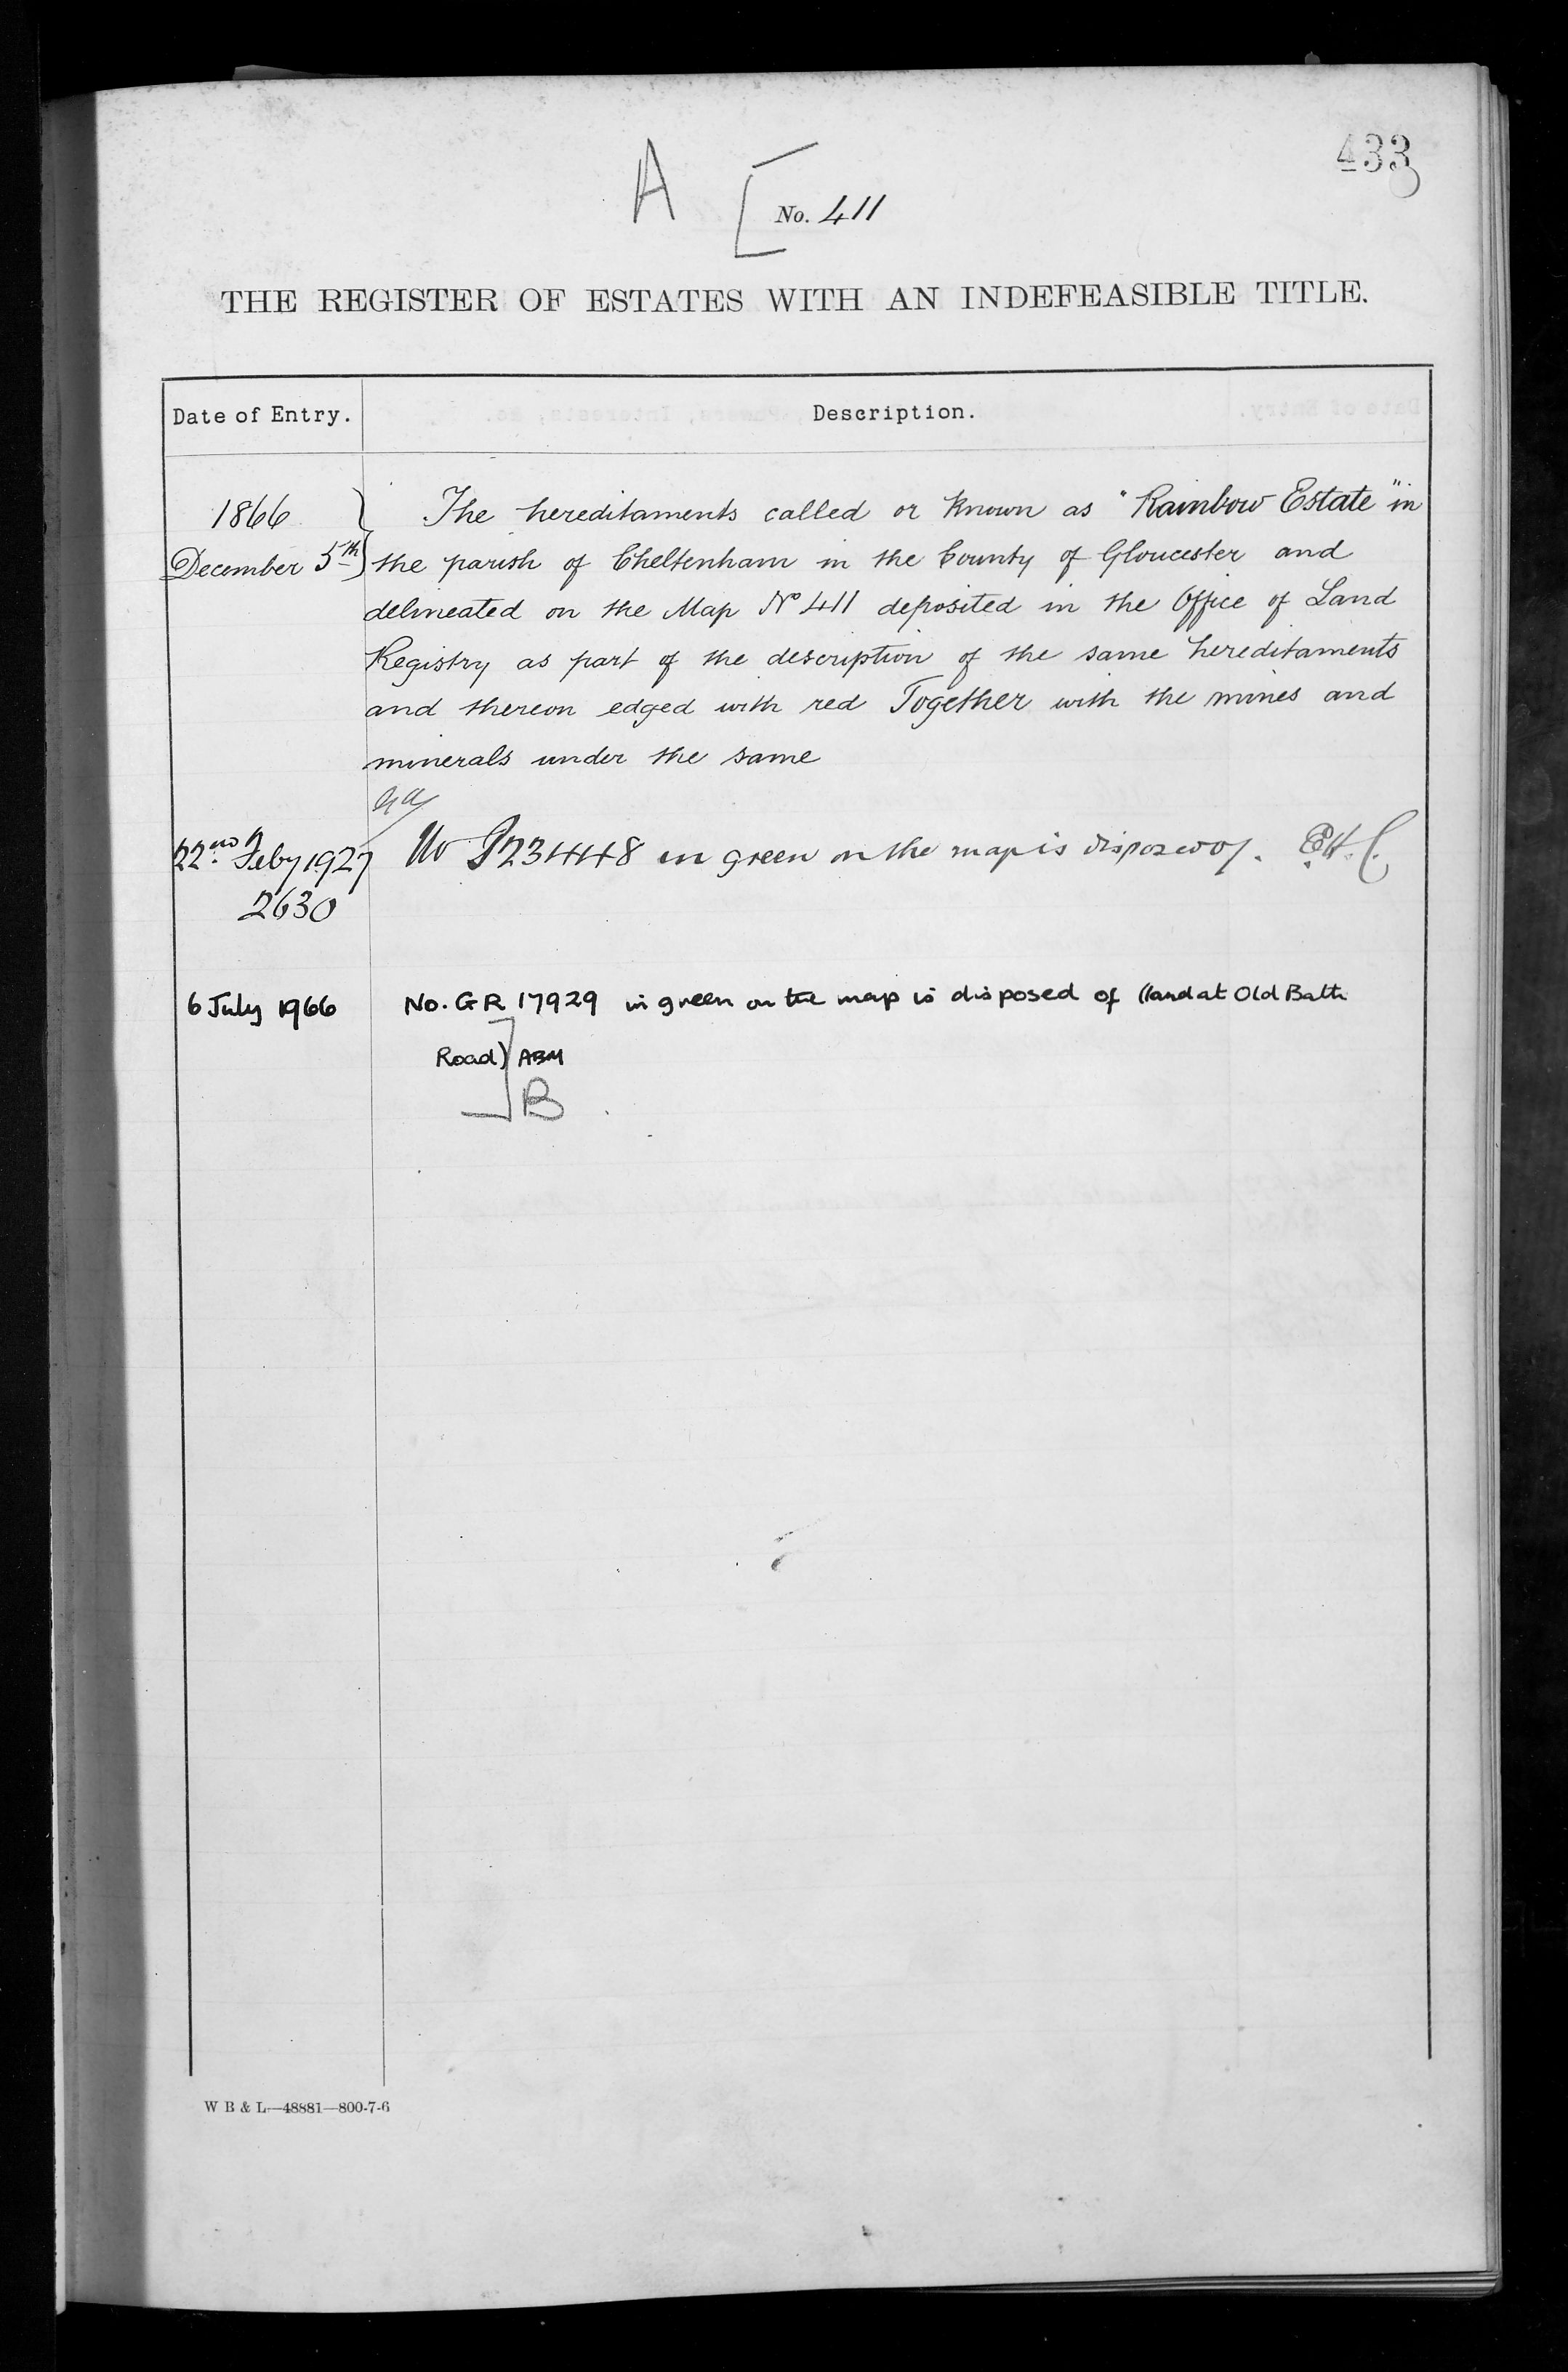 433
A
No. 411
THE REGISTER OF ESTATES WITH AN INDEFEASIBLE TITLE.
Date of Entry. Description.
1866 The hereditaments called or known as "Rainbow Estate" in
December 5th the parish of Cheltenham in the County of Gloucester and
delineated on the Map No 411 deposited in the Office of Land
Registry as part of the description of the same hereditaments
and thereon edged with red Together with the mines and
minerals under the same
22nd Feby 1927 No P23448 in green on the map is disposed of. E.H.C.
2630
6 July 1966 No. GR 17929 in green on the map is disposed of (land at Old Bath
Road) ABM
B
W B & L—48881—800-7-6